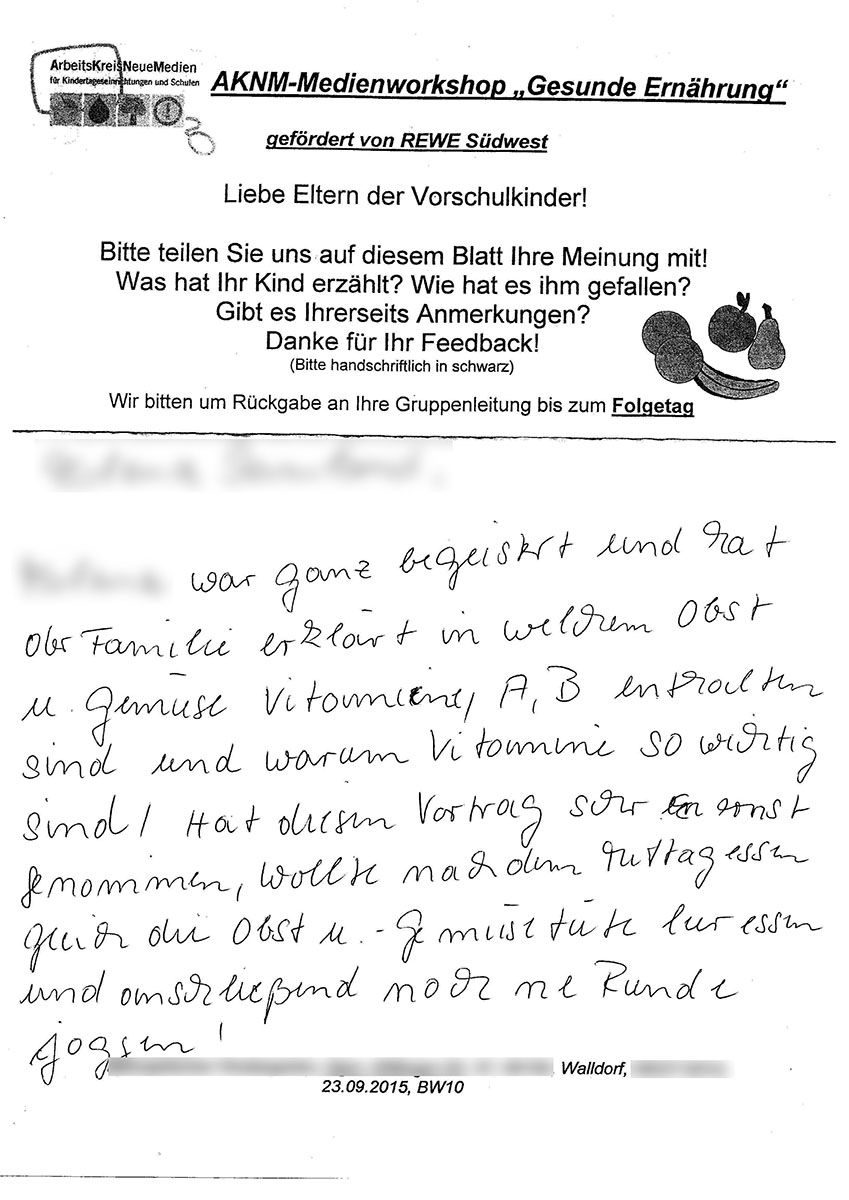 ArbeitsKreisNeueMedien
für Kindertageseinrichtungen und Schulen
AKNM-Medienworkshop „Gesunde Ernährung“
gefördert von REWE Südwest
Liebe Eltern der Vorschulkinder!
Bitte teilen Sie uns auf diesem Blatt Ihre Meinung mit!
Was hat Ihr Kind erzählt? Wie hat es ihm gefallen?
Gibt es Ihrerseits Anmerkungen?
Danke für Ihr Feedback!
(Bitte handschriftlich in schwarz)
Wir bitten um Rückgabe an Ihre Gruppenleitung bis zum Folgetag
war ganz begeistert und hat
der Familie erklärt in welchem Obst
u. Gemüse Vitamine, A, B enthalten
sind und warum Vitamine so wichtig
sind! Hat diesen Vortrag sehr ernst
genommen, wollte nach dem Mittagessen
gleich die Obst u. - Gemüsetüte leer essen
und anschließend noch ne Runde
joggen!
Walldorf,
23.09.2015, BW10